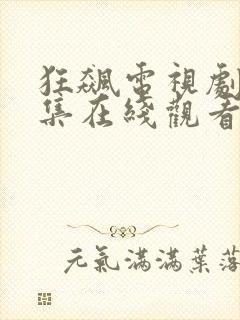 狂飆電視劇
集在綫觀看
元氣滿滿葉落